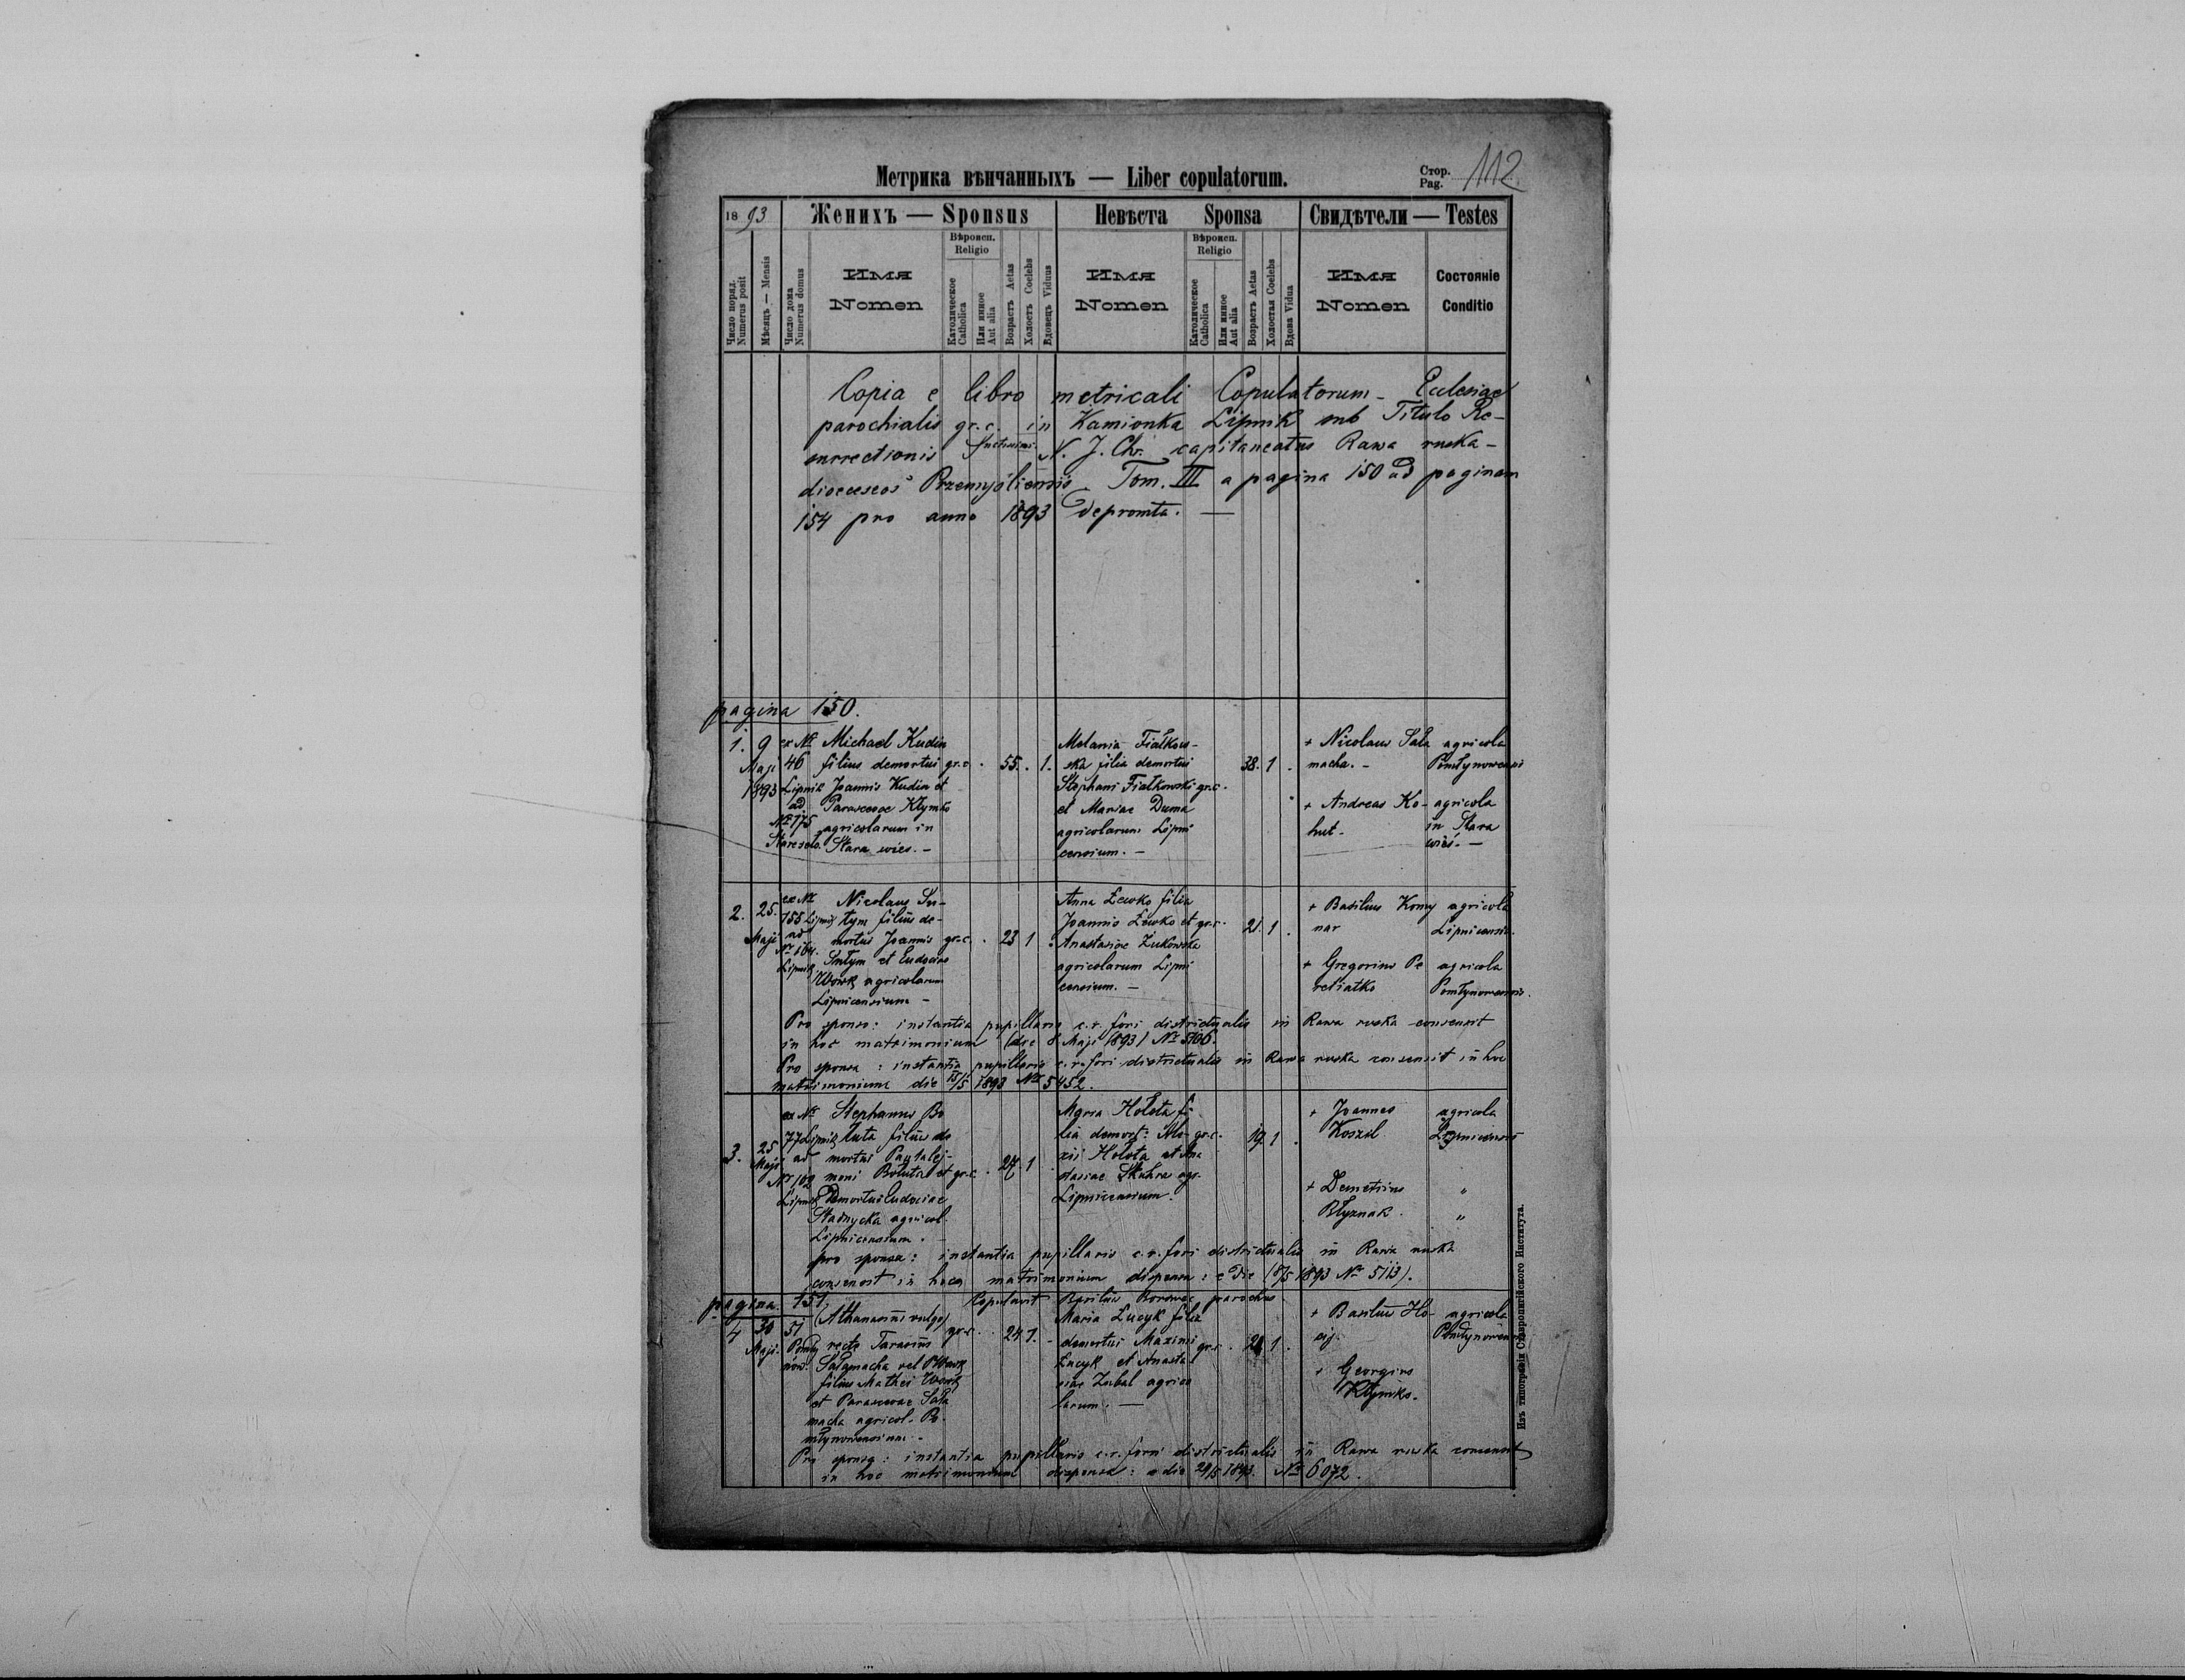 Метрика вѣнчанныхъ — Liber copulatorum.
Стор.
Pag. 112
18 93
Женихъ — Sponsus
Невѣста Sponsa
Свидѣтели — Testes
Число поряд.
Numerus posit
Мѣсяцъ — Mensis
Число дома
Numerus domus
Имя
Nomen
Вѣроисп.
Religio
Католическое
Catholica
Или инное
Aut alia
Возрастъ Aetas
Холостъ Coelebs
Вдовецъ Viduus
Имя
Nomen
Вѣроисп.
Religio
Католическое
Catholica
Или инное
Aut alia
Возрастъ Aetas
Холостая Coelebs
Вдова Vidua
Имя
Nomen
Состояніе
Conditio
Copia e libro metricali Copulatorum - Ecclesiae
parochialis gr.c. in Kamionka Lipnik sub Titulo Re-
surrectionis N. J. Chr. capitaneatus Rawa ruska -
dioeceseos Przemysliensis Tom. III a pagina 150 ad paginam
154 pro anno 1893 depromta. —
pagina 150.
1.
9
Maji
1893
ex Nr
46
Lipnik
ad
Nr 175
Michael Kudin
filius demortui
Joannis Kudin et
Parascevae Klymko
agricolarum in
Stara wies. -
gr.c. 55. . 1.
Melania Fiałkow-
ska filia demortui
Stephani Fiałkowski
et Mariae Duma
agricolarum Lipni
censium. -
gr.c. 38. 1 .
+ Nicolaus Sała
macha. -
agricola
Pomłynowensis
+ Andreas Ko-
hut -
agricola
in Stara
wieś. —
2.
25.
Maji
ex Nr
155 Lipnik
ad
Nr 164.
Lipnik
Nicolaus Sw-
tym filius de-
mortui Joannis
Swtym et Eudociae
Wowk agricolarum
Lipnicensium -
gr.c. . 23 1 .
Anna Łewko filia
Joannis Łewko et
Anastasiae Żukowska
agricolarum Lipni
censium. -
gr.c. 21. 1 .
+ Basilius Komy
nar
agricola
Lipnicensis.
+ Gregorius Pe
retiatko
agricola
Pomłynowensis.
Pro sponso: instantia pupillaris c.r. fori districtualis in Rawa ruska consensit
in hoc matrimonium (die 8 Maji 1893) Nr 5106.
Pro sponsa: instantia pupillaris c.r. fori districtualis in Rawa ruska consensit in hoc
matrimonium die 15/5 1893 Nr 5452.
3.
25
Maji
ex Nr
77 Lipnik
ad
Nr 102
Lipnik
Stephanus Bo
luta filius de
mortui Pantalej-
moni Boluta et
Demortui Eudociae
Stadnycka agricol.
Lipnicensium. -
gr.c. . 27. 1
Maria Hołota fi
lia demort: Ale-
xii Hołota et Ana
stasiae Skahra agr.
Lipnicensium.
gr.c. 19. 1 .
+ Joannes
Koszil
agricola
Lipnicensis
+ Demetrius
Błyznak.
"
"
pro sponsa: instantia pupillaris c.r. fori districtualis in Rawa ruska
consensit in hocce matrimonium dispensa: e die (8/5 1893 Nr 5113).
Copulavit Basilius Borowec parochus
pagina 151.
4
30
Maji.
51
Pomły
now.
(Athanasius vulgo)
recte Tarasius
Sałamacha vel Wowk
filius Mathei Wowk
et Parascevae Sała
macha agricol. Po-
młynowensium. -
gr.c. . 24 1. -
Maria Łucyk filia
demortui Maximi
Łucyk et Anasta
siae Zubal agrico
larum. —
gr.c. . 24 1 .
+ Basilius Ho-
cij.
agricola
Pomłynowensis
+ Georgius
Kłymko.
Pro sponsa: instantia pupillaris c.r. fori districtualis in Rawa ruska consensit
in hoc matrimonium dispensa: e die 29/5 1893. Nr 6072.
Изъ типографіи Ставропигійского Института.